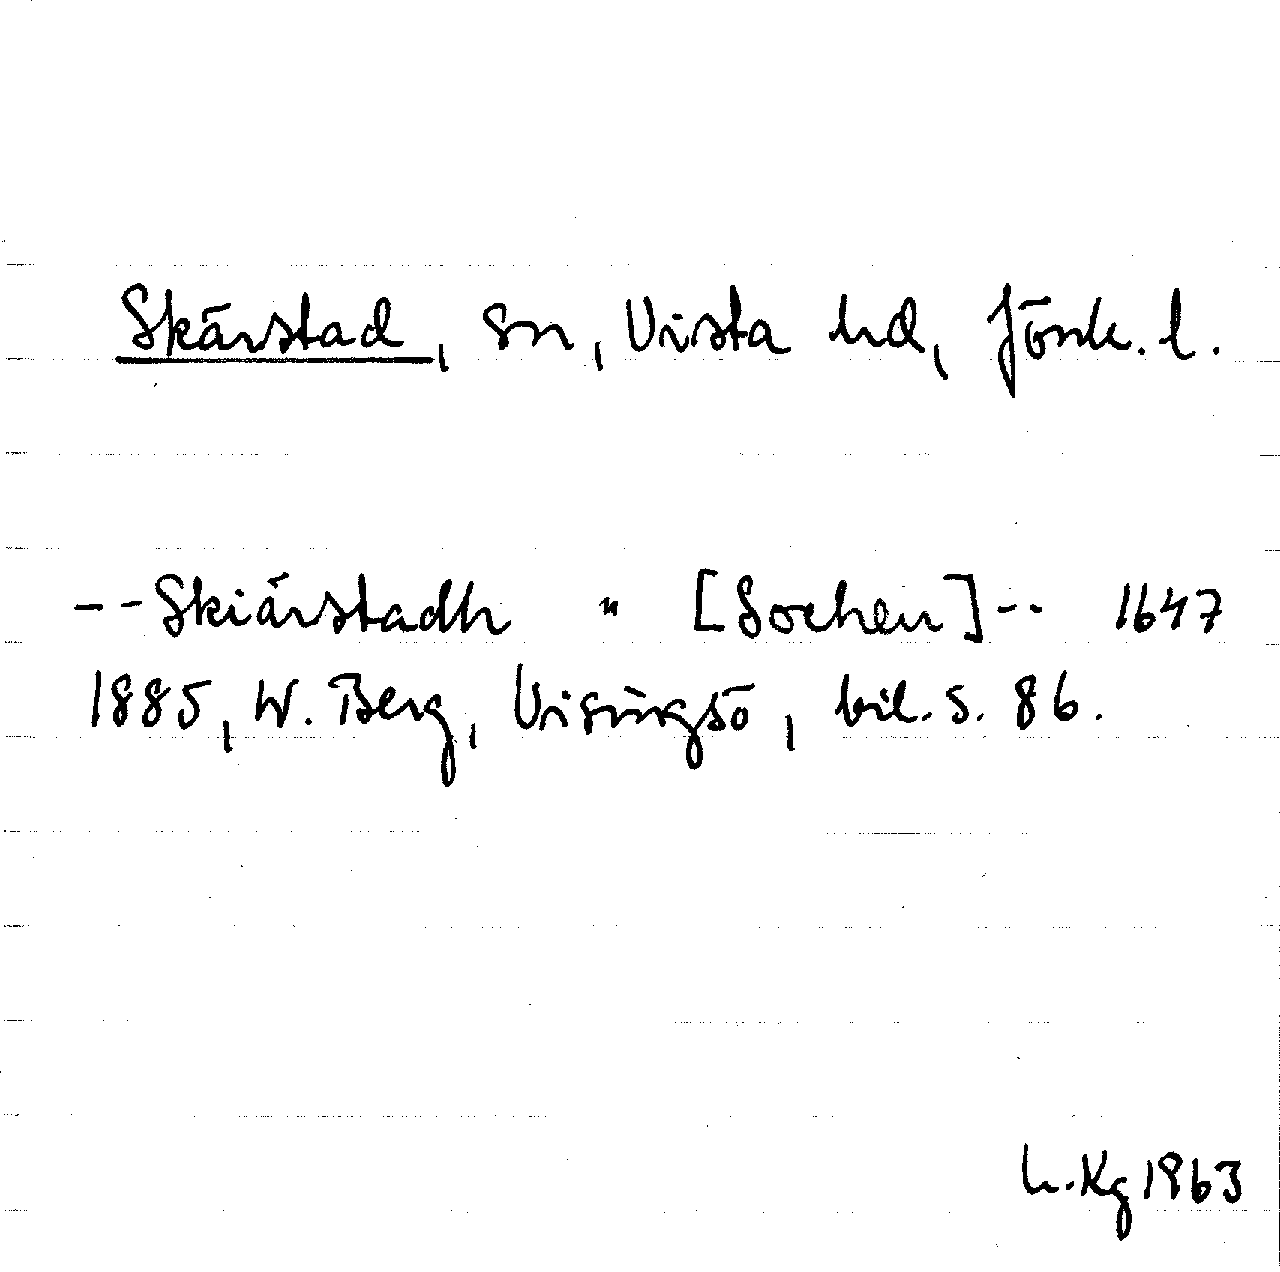 Skärstad, sn, Vista hd, Jönk. l.
-- Skiärstadh " [Sochen] -- 1647
1885, W. Berg, Visingsö, bil. s. 86.
L. Kg 1963